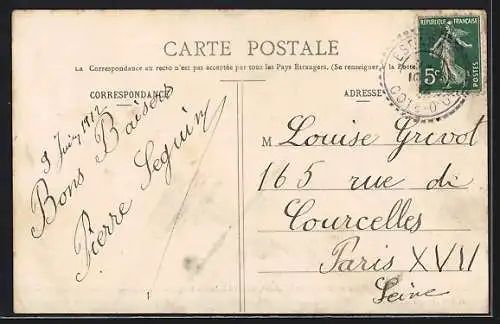 CARTE POSTALE
La Correspondance au recto n'est pas acceptée par tous les Pays Etrangers. (Se renseigner à la Poste.)
CORRESPONDANCE
ADRESSE
REPUBLIQUE FRANÇAISE
5c
POSTES
COTE-D'OR
Juin 1912
Bons Baisers
Pierre Seguin
M Louise Grivot
165 rue de
Courcelles
Paris XVII
Seine
1